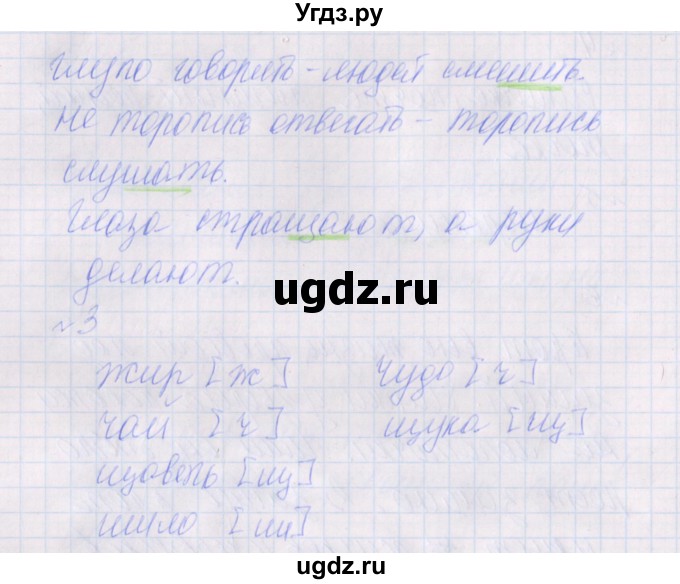 Угдз.ру
глупо говорить - людей смешить.
Не торопись отвечать - торопись
слушать.
Глаза страшают, а руки
делают.
ugdz.ru
№3
жир [ж] чудо [ч]
чай [ч] щука [щ]
щавель [щ]
шило [ш]
ugdz.ru